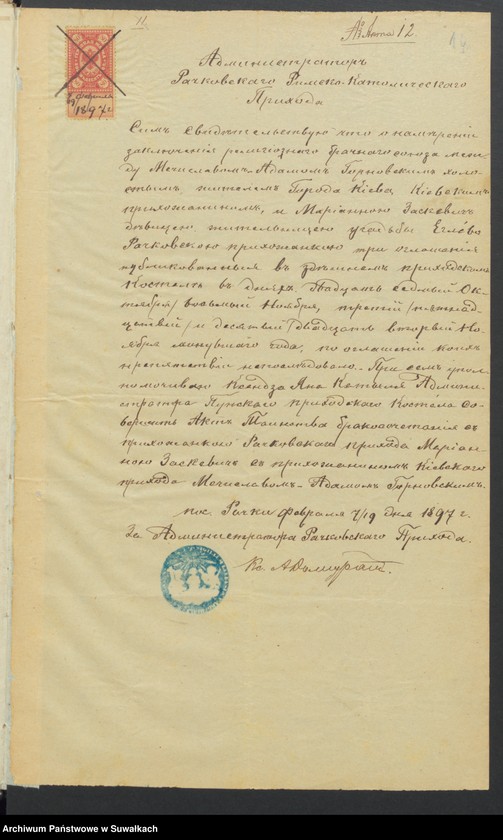 11
Акта 12.
14
7 февраля
1897 г
Администраторъ
Рачковскаго Римско-Католическаго
Прихода
Симъ свидѣтельствую что о намѣреніи
заключенія религіознаго брачнаго союза меж-
ду Мечиславомъ-Адамомъ Горновскимъ холо-
стымъ жителемъ Города Кіева Кіевскимъ
прихожаниномъ, и Маріанною Заскевичъ
дѣвицею жительницею усадьбы
Рачковскою прихожанкою три оглашенія
публикованныя въ здѣшнемъ приходскомъ
Костелѣ въ дняхъ Двадцать седьмой Ок-
тября/восьмый Ноября, третій/пятнад-
цатый/и десятый/двадцать вторый Но-
ября минувшаго года, по оглашеніи коихъ
препятствій непослѣдовало. - При семъ упол-
номочиваю Ксендза Яна Админи-
стратора приходскаго Костела со-
вершить Актъ Таинства бракосочетанія съ
прихожанкою Рачковскаго прихода Маріан-
ною Заскевичъ съ прихожаниномъ Кіевскаго
прихода Мечиславомъ-Адамомъ Горновскимъ.
пос. Рачки Февраля 7/19 дня 1897 г.
За Администратора Рачковскаго Прихода.
Кс.
Archiwum Państwowe w Suwałkach